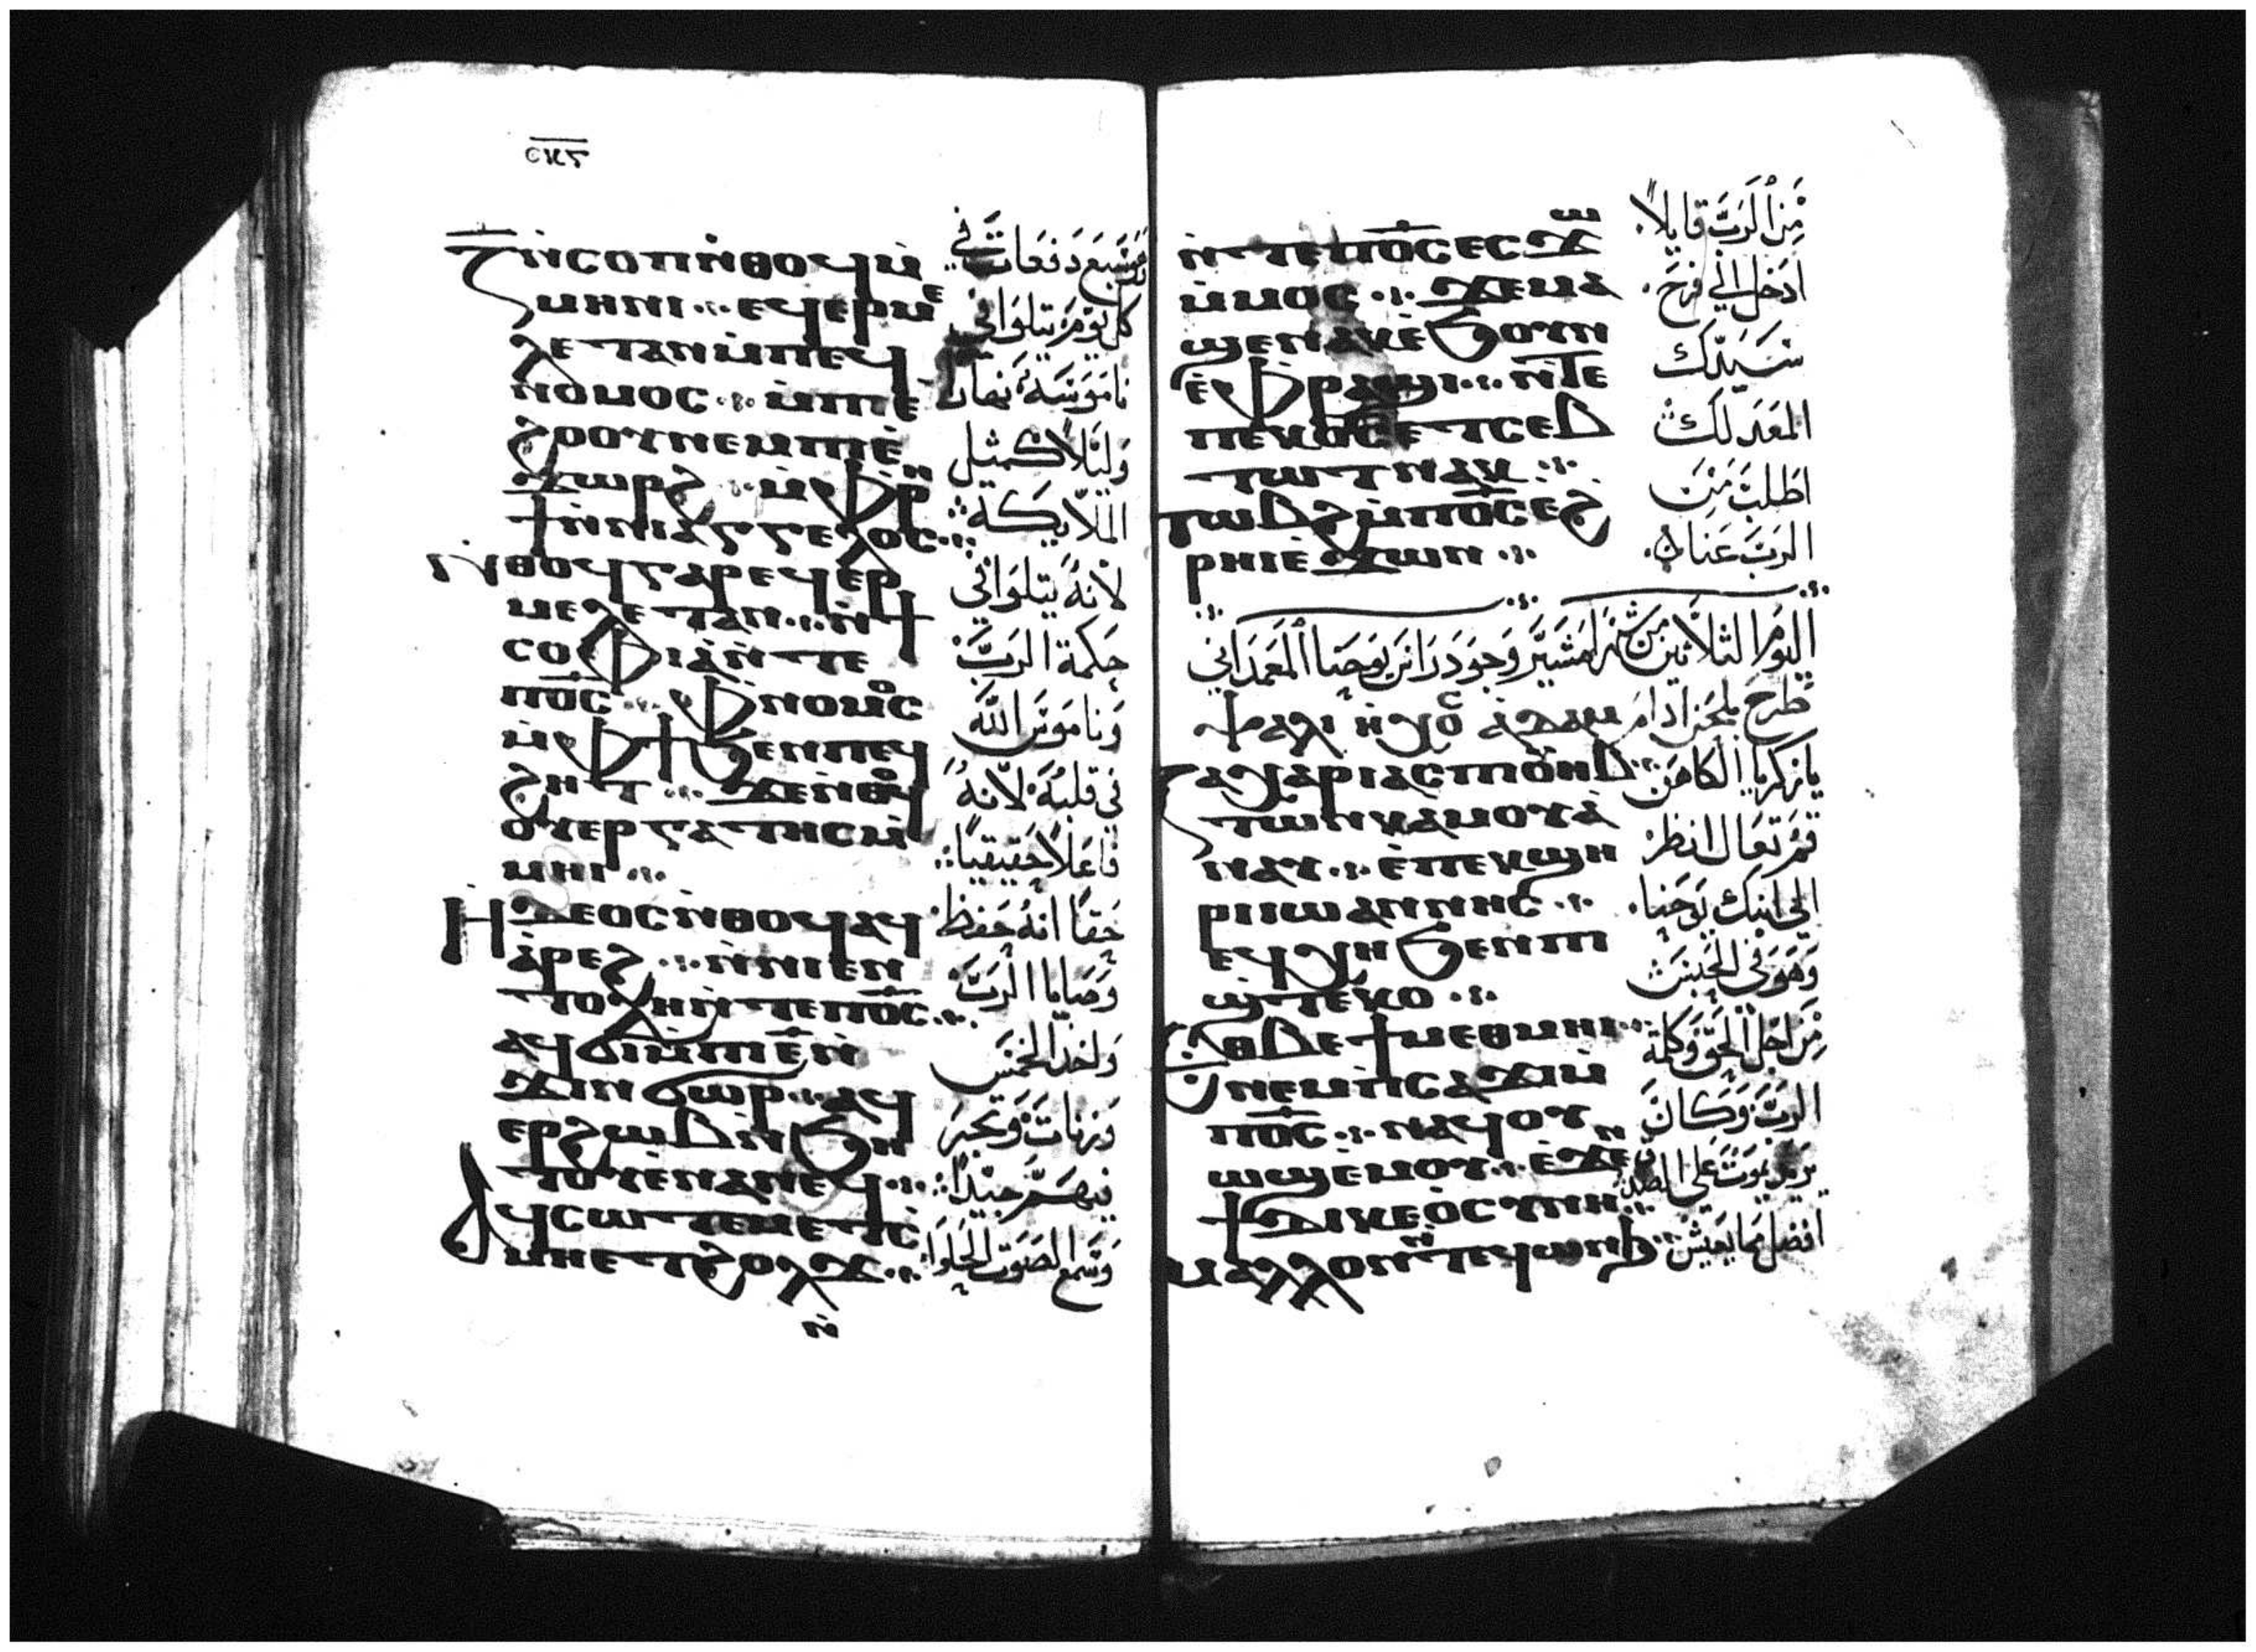 ⲥⲕⲍ
ⲍ̅ ⲛ̀ⲥⲟⲡ ⲛ̀ⲑⲟϥ ⲙ̀
ⲙⲏⲛⲓ ⁘ ⲉϥⲉⲣⲙⲉ
ⲗⲉⲧⲁⲛ ⲙ̀ⲡⲉϥ
ⲛⲟⲙⲟⲥ ⁘ ⲙ̀ⲡⲓⲉ̀
ϩⲟⲟⲩ ⲛⲉⲙ ⲡⲓⲉ̀
ϫⲱⲣϩ ⁘ ⲙ̀ⲫⲣⲏ
ϯ ⲛ̀ⲛⲓⲁⲅⲅⲉⲗⲟⲥ ⁘
ⲛ̀ⲑⲟϥ ⲅⲁⲣ ⲉϥⲉⲣ
ⲙⲉⲗⲉⲧⲁⲛ ⁘ ⲛ̀ϯ
ⲥⲟⲫⲓⲁ ⲛ̀ⲧⲉ
ⲡⲟ̅ⲥ̅ ⁘ ⲫⲛⲟⲙⲟⲥ
ⲙ̀ⲫϯ ϧⲉⲛ ⲡⲉϥ
ϩⲏⲧ ⁘ ϫⲉ ⲛ̀ⲑⲟϥ
ⲟⲩⲉⲣⲅⲁⲧⲏⲥ ⲙ̀
ⲙⲏⲓ ⁘
ⲏⲇⲉⲟⲥ ⲛ̀ⲑⲟϥ ⲁϥ
ⲁ̀ⲣⲉϩ ⁘ ⲛ̀ⲛⲓⲉⲛ
ⲧⲟⲗⲏ ⲛ̀ⲧⲉ ⲡⲟ̅ⲥ̅ ⁘
ⲁϥϭⲓ ⲙ̀ⲡⲓⲉ̅ ⲛ̀
ϫⲓⲛϭⲱⲣ ⁘ ⲁϥ
ⲉⲣϩⲱⲃ ⲛ̀ϧⲏ
ⲧⲟⲩ ⲉⲛⲁⲛⲉϥ ⁘
ⲁϥⲥⲱⲧⲉⲙ ⲉ̀ⲧⲥ
ⲙⲏ ⲉⲧϩⲟⲗϫ ⁘
ⲛ̀
سبع دفعات في
كل يوم يتلوا في
ناموسه نهارًا
وليلًا كمثل
الملايكة
لانه يتلوا في
حكمة الرب
وناموس الله
في قلبه لانه
فاعلًا حقيقيًا
حقًا انه حفظ
وصايا الرب
واخد الخمس
وزنات وتجر
فيهم جيدًا
وسمع الصوت الحلوا
ⲛ̀ⲧⲉ ⲡⲟ̅ⲥ̅ ⲉⲥϫⲱ
ⲙ̀ⲙⲟⲥ ⁘ ϫⲉ ⲙⲁ
ϣⲉⲛⲁⲕ ⲉ̀ϧⲟⲩⲛ
ⲉ̀ⲫⲣⲁϣⲓ ⁘ ⲛ̀ⲧⲉ
ⲡⲉⲕⲟ̅ⲥ̅ ⲉⲧⲥⲉⲃ
ⲧⲱⲧ ⲛⲁⲕ ⁘
ⲧⲱⲃϩ ⲙ̀ⲡⲟ̅ⲥ̅ ⲉ̀ϩ
ⲣⲏⲓ ⲉ̀ϫⲱⲛ ⁘
من الرب قايلًا
ادخل الي فرح
سيدك
المعد لك
اطلب من
الرب عنا
اليوم الثلاثين من شهر امشير وجود راس يوحنا المعمداني
ⲯⲁⲗⲓ ⲛ̀ⲭⲟⲥ ⲁ̀ⲇⲁⲙ طرح بلحن ادام
ⲍⲁⲭⲁⲣⲓⲁⲥ ⲡⲓⲟⲩⲏⲃ ⁘
ⲧⲱⲛⲕ ⲁ̀ⲙⲟⲩ ⲁ̀
ⲛⲁⲩ ⁘ ⲉ̀ⲡⲉⲕϣⲏ
ⲣⲓ ⲓⲱⲁⲛⲛⲏⲥ ⁘
ⲉϥⲭⲏ ϧⲉⲛ ⲡⲓ
ϣ̀ⲧⲉⲕⲟ ⁘
ⲉⲑⲃⲉ ϯⲙⲉⲑⲙⲏⲓ ⁘
ⲛⲉⲙ ⲡ̀ⲥⲁϫⲓ ⲙ̀
ⲡⲟ̅ⲥ̅ ⁘ ⲛⲁϥⲟⲩ
ⲱϣ ⲉ̀ⲙⲟⲩ ⁘ ⲉ̀ϫⲉⲛ
ϯⲇⲓⲕⲉⲟⲥⲩⲛⲏ ⁘
ⲙⲁⲗⲗⲟⲛ ⲛ̀ⲧⲉϥⲱⲛϧ ⁘
يا زكريا الكاهن
قم تعال انظر
الي ابنك يوحنا
وهو في الحبس
من اجل الحق وكلمة
الرب وكان
يريد يموت علي الصدق
افضل مما يعيش